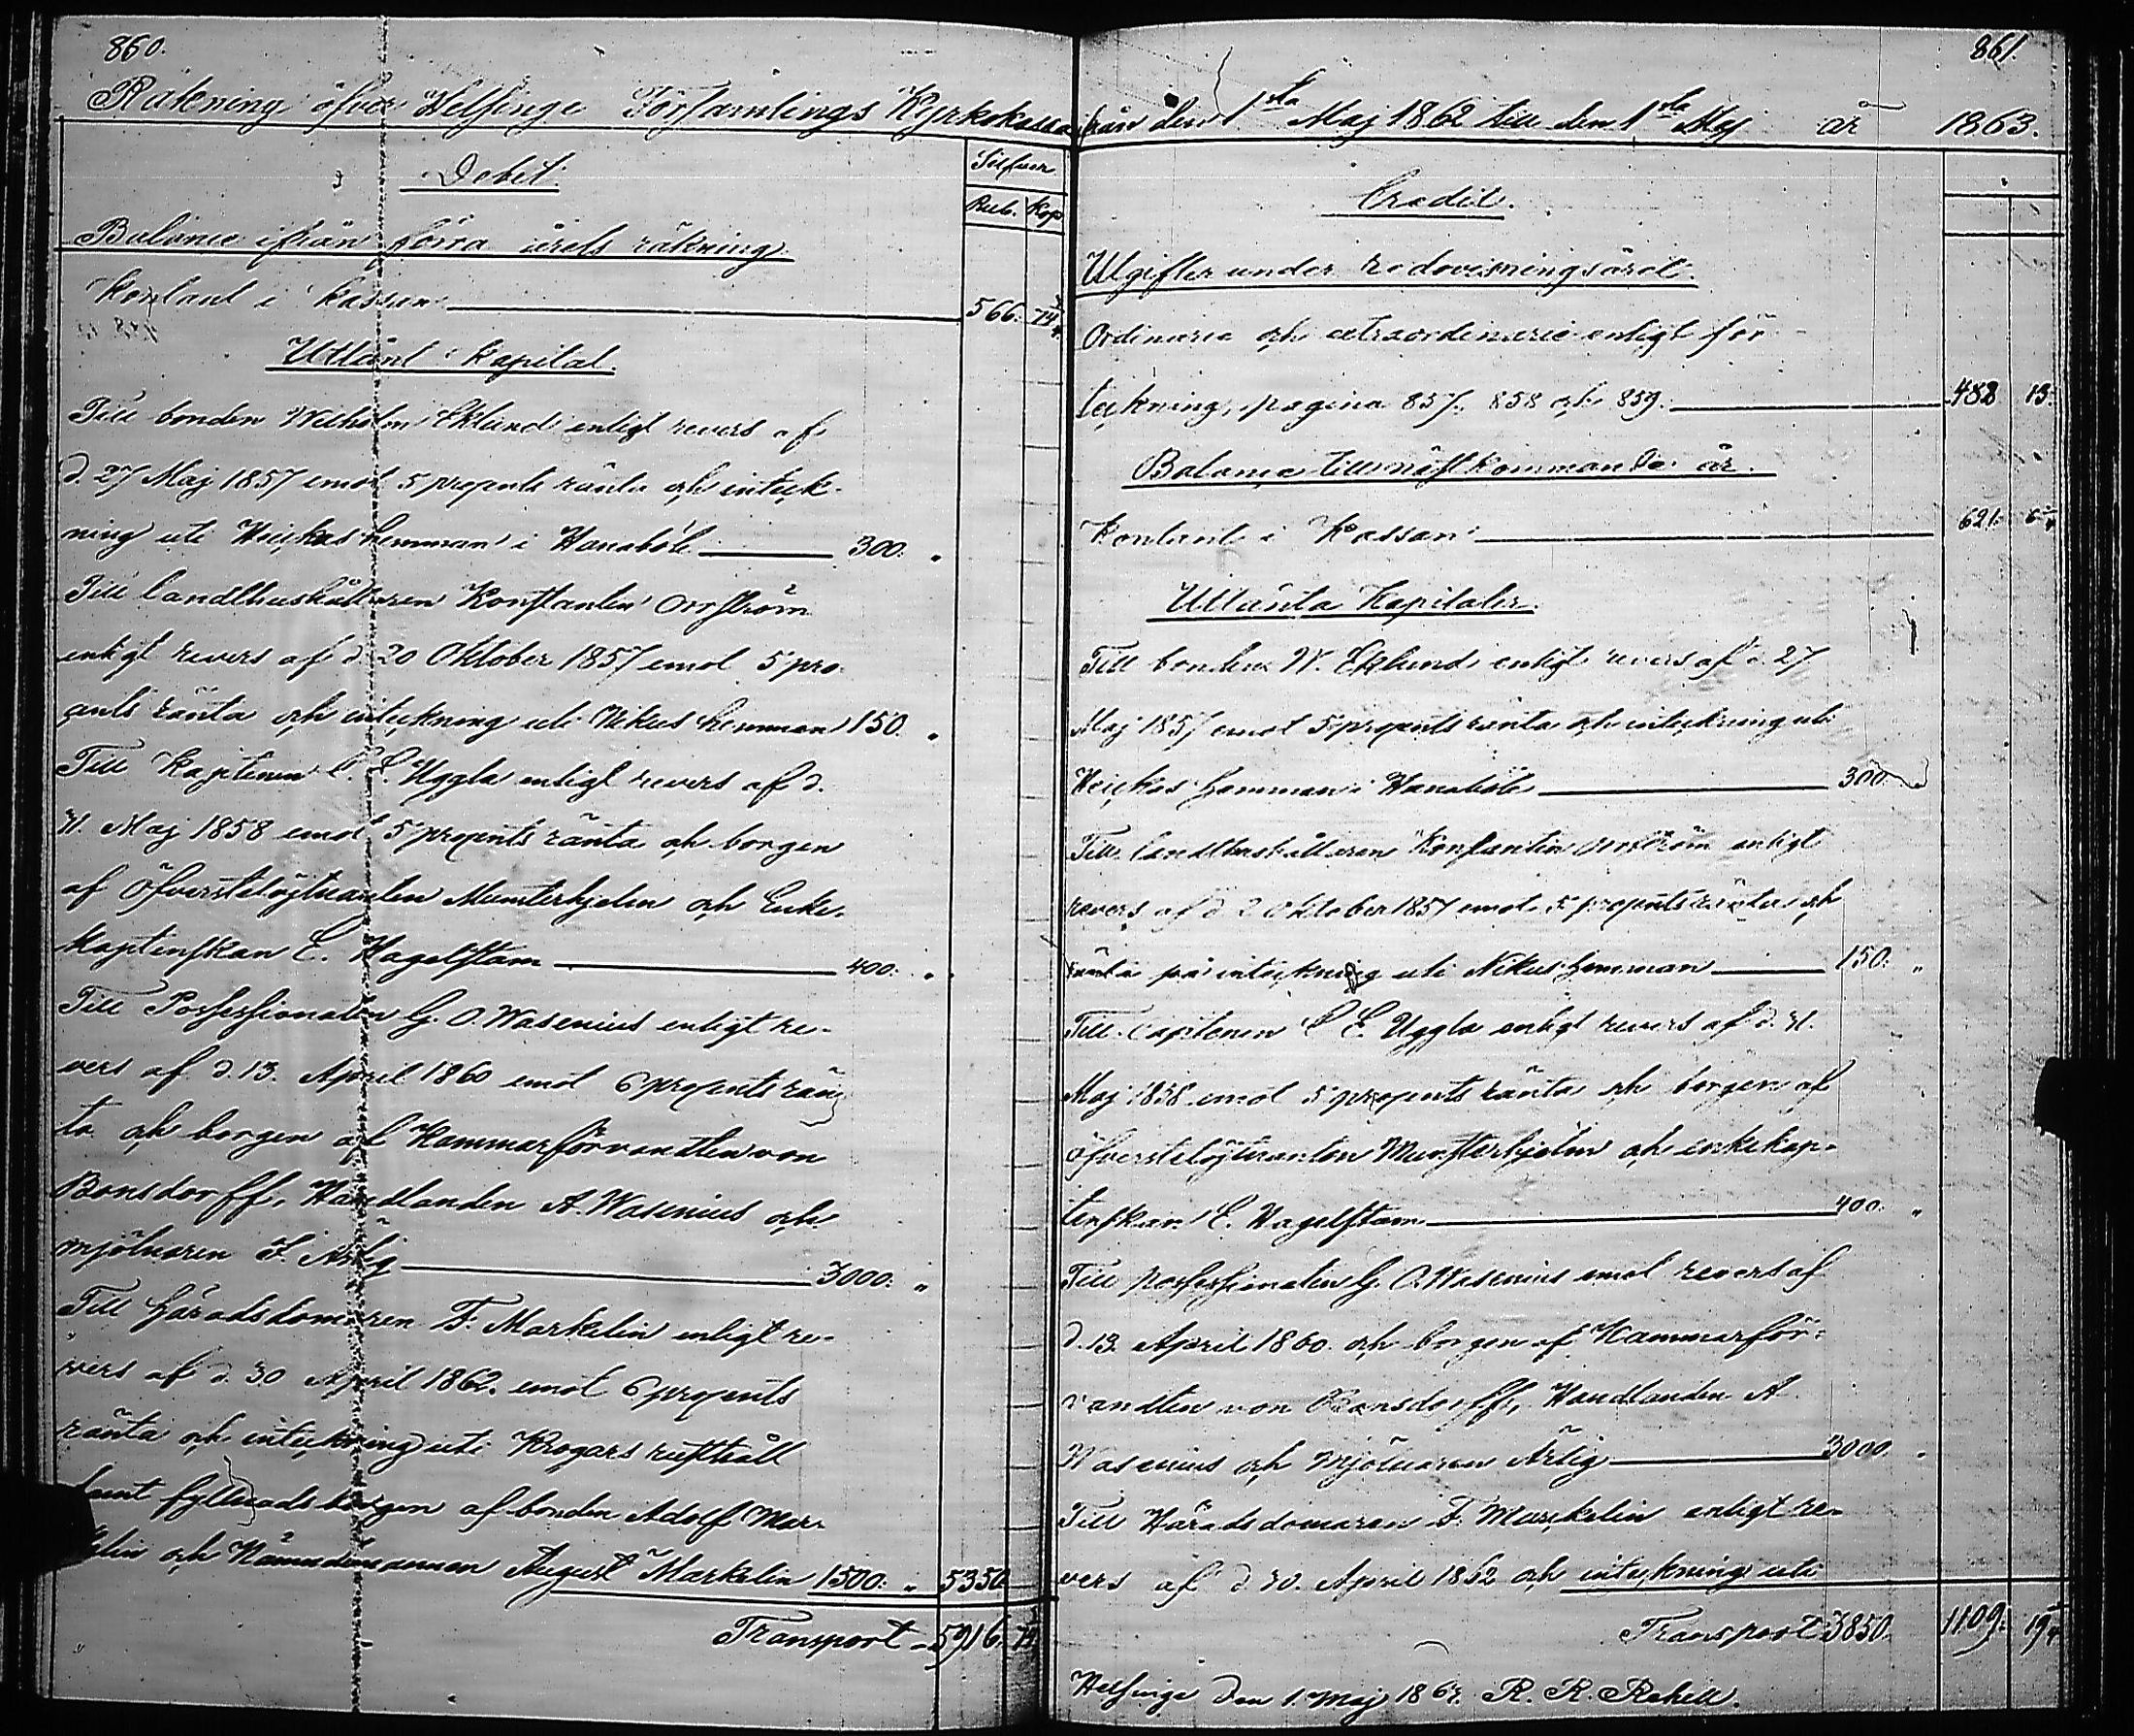 860.
Räkning öfver Helsinge Församlings Kyrkokassa
Debet.
Silfver
Rub. Kop
Balance ifrån förra årets räkning.
Kontant i kassan 566. 74
Utlånt kapital.
Till bonden Wilhelm Eklund enligt revers af
d. 27 Maj 1857 emot 5 procents ränta och inteck-
ning uti Heickas hemman i Hanaböle 300. "
Till landthushållaren Konstantin Orrström
enligt revers af d. 20 Oktober 1857 emot 5 pro-
cents ränta och inteckning uti Nikus hemman 150. "
Till Kaptenen C. E. Uggla enligt revers af d.
31. Maj 1858 emot 5 procents ränta och borgen
af Öfverstelöjtnanten Munsterhjelm och Enke-
kaptenskan C. Hagelstam 400. "
Till Possessionaten G. O. Wasenius enligt re-
vers af d. 13. April 1860 emot 6 procents rän
ta och borgen af Kammarförvandten von
Bonsdorff, Handlanden A. Wasenius och
mjölnaren F. Ärlig 3000. "
Till häradsdomaren F. Markelin enligt re-
vers af d. 30 April 1862. emot 6 procents
ränta och inteckning uti Krogars rusthåll
samt fyllnads borgen af bonden Adolf Mar-
kelin och Nämndemannen August Markelin 1500. " 5350
Transport 5916. 74
861.
från den 1sta Maj 1862 till den 1sta Maj år 1863.
Credit.
Utgifter under redovisningsåret.
Ordinarie och extraordinarie enligt för-
teckning, pagina 857, 858 och 859. 488 13.
Balance till nästkommande år.
Kontant i Kassan 621. 6
Utlånta Kapitaler.
Till bonden W. Eklund enligt revers af d. 27
Maj 1857 emot 5 procents ränta och inteckning uti
Heickas hemman i Hanaböle 300.
Till landthushållaren Konstantin Orrström enligt
revers af d 20 Oktober 1857 emot 5 procents ränta och
ränta på inteckning uti Nikus hemman 150. "
Till Captenen C E. Uggla enligt revers af d. 31.
Maj 1858 emot 5 procents ränta och borgen af
öfverstelöjtnanten Munsterhjelm och enkekap-
tenskan C. Hagelstam 400. "
Till possessionaten G. O. Wasenius emot revers af
d. 13. April 1860. och borgen af Kammarför-
vandten von Bonsdorff, Handlanden A
Wasenius och Mjölnaren Ärlig 3000. "
Till Häradsdomaren F. Markelin enligt re-
vers af d 30. April 1862 och inteckning uti
Transport 3850. 1109. 19
Helsinge den 1. Maj 1863. R. R. Rehell.